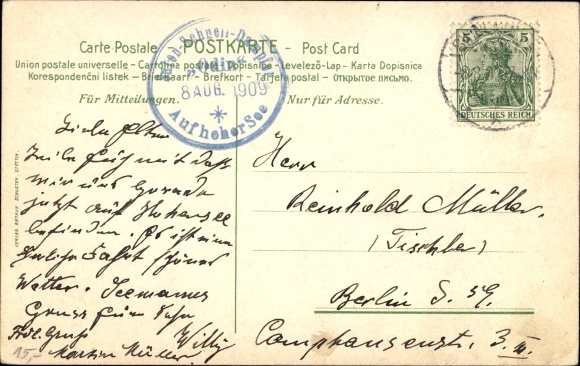 Carte Postale POSTKARTE - Post Card
Union postale universelle - Cartolina postale Dopisnice Levelező-Lap - Karta Dopisnica
Korespondenční listek - Briefkaart - Brefkort - Tarjeta postal - Открытое письмо.
Für Mitteilungen.
Nur für Adresse.
"Odin"
8 AUG. 1909
*
Auf hoher See
5 5
DEUTSCHES REICH
Liebe Eltern
Teile Euch mit daß
wir uns gerade
jetzt auf Hohersee
befinden. Es ist eine
Fahrt schönes
Wetter. Seemanns
Gruss Euer Sohn
Willy
Frdl. Gruß
Martin Müller
15,-
Herr
Reinhold Müller,
(Tischler)
Berlin S. 59.
Camphausenstr. 3. III.